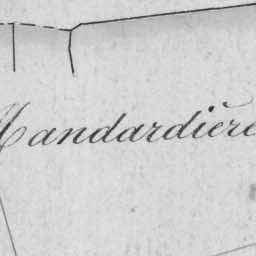 Mandardière